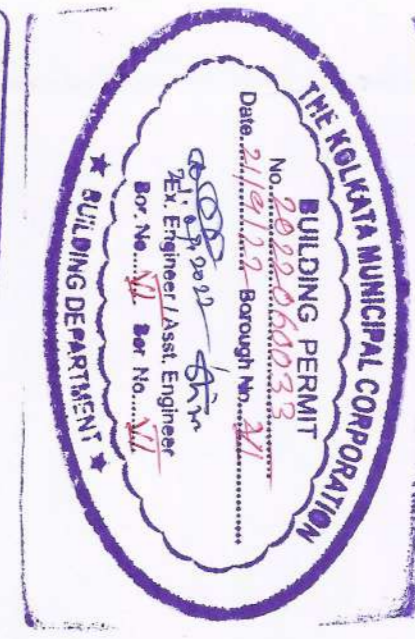 THE KOLKATA MUNICIPAL CORPORATION
BUILDING PERMIT
No. 2022060033
Date. 21/9/22 Borough No. VI
21.09.2022
Ex. Engineer / Asst. Engineer
Bor. No. VI Bor No. VI
★ BUILDING DEPARTMENT ★